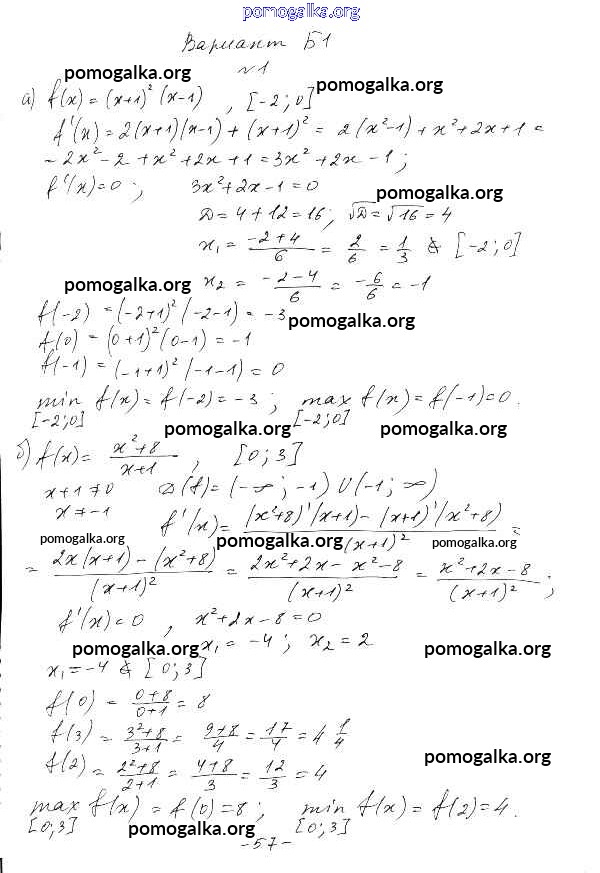 pomogalka.org
Вариант Б1
№1
pomogalka.org
а) f(x) = (x+1)²(x-1) , [-2; 0]
pomogalka.org
f'(x) = 2(x+1)(x-1) + (x+1)² = 2(x²-1) + x²+2x+1 =
= 2x²-2+x²+2x+1 = 3x²+2x-1;
f'(x)=0 ; 3x²+2x-1=0
pomogalka.org
D = 4+12=16; √D = √16 = 4
x₁ = (-2+4)/6 = 2/6 = 1/3 ∉ [-2; 0]
pomogalka.org
x₂ = (-2-4)/6 = -6/6 = -1
f(-2) = (-2+1)²(-2-1) = -3
pomogalka.org
f(0) = (0+1)²(0-1) = -1
f(-1) = (-1+1)²(-1-1) = 0
min f(x) = f(-2) = -3 ; max f(x) = f(-1)=0.
[-2;0] [-2;0]
pomogalka.org pomogalka.org
б) f(x) = (x²+8)/(x+1) , [0; 3]
x+1≠0 D(f) = (-∞; -1) U (-1; ∞)
x≠-1 f'(x) = ((x²+8)'(x+1) - (x+1)'(x²+8))/(x+1)² =
pomogalka.org pomogalka.org pomogalka.org
= (2x(x+1) - (x²+8))/(x+1)² = (2x²+2x-x²-8)/(x+1)² = (x²+2x-8)/(x+1)² ;
f'(x)=0 , x²+2x-8=0
pomogalka.org x₁ = -4 ; x₂ = 2 pomogalka.org
x₁=-4 ∉ [0; 3]
f(0) = (0+8)/(0+1) = 8
f(3) = (3²+8)/(3+1) = (9+8)/4 = 17/4 = 4 1/4
pomogalka.org
f(2) = (2²+8)/(2+1) = (4+8)/3 = 12/3 = 4
max f(x) = f(0) = 8 ; min f(x) = f(2) = 4.
[0;3] [0;3]
pomogalka.org pomogalka.org
-57-